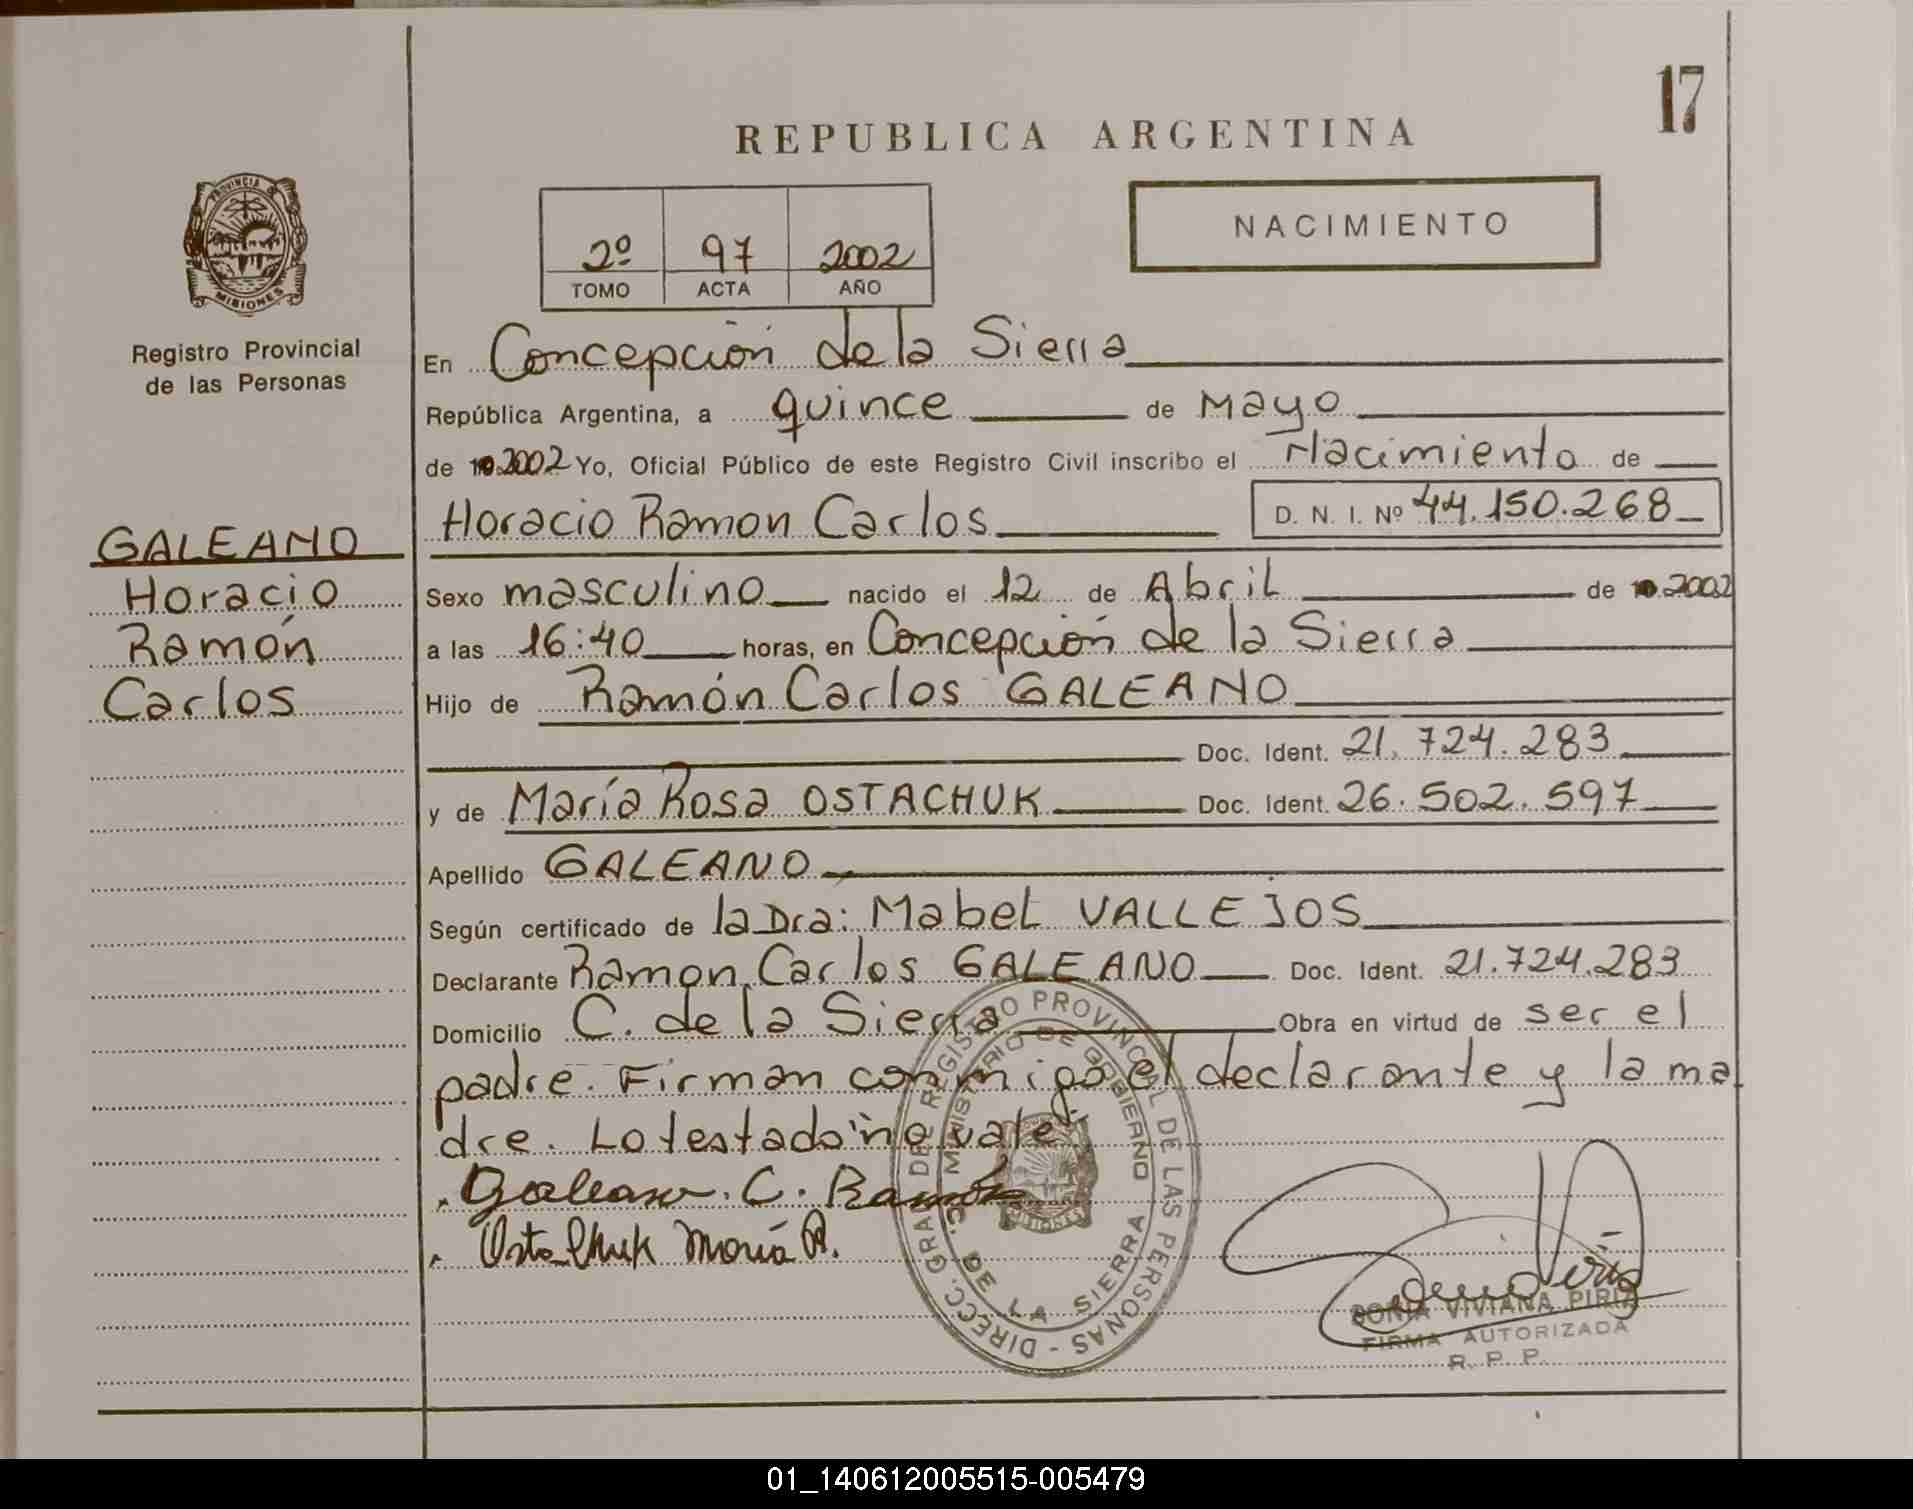 17
REPUBLICA ARGENTINA
PROVINCIA DE
MISIONES
Registro Provincial
de las Personas
NACIMIENTO
2º 97 2002
TOMO ACTA AÑO
En Concepción de la Sierra
República Argentina, a quince de Mayo
de 2002 Yo, Oficial Público de este Registro Civil inscribo el Nacimiento de
Horacio Ramon Carlos D. N. I. Nº 44.150.268
GALEANO
Horacio
Ramón
Carlos
Sexo masculino nacido el 12 de Abril de 2002
a las 16:40 horas, en Concepción de la Sierra
Hijo de Ramón Carlos GALEANO
Doc. Ident. 21.724.283
y de María Rosa OSTACHUK Doc. Ident. 26.502.597
Apellido GALEANO
Según certificado de la Dra: Mabel VALLEJOS
Declarante Ramon Carlos GALEANO Doc. Ident. 21.724.283
Domicilio C. de la Sierra Obra en virtud de ser el
padre. Firman conmigo el declarante y la ma
dre. Lo testado no vale.
Galeano. C. Ramón
Ostachuk María R.
DIRECC. GRAL. DE REGISTRO PROVINCIAL DE LAS PERSONAS -
MINISTERIO DE GOBIERNO
C. DE LA SIERRA
MISIONES
SONIA VIVIANA PIRIZ
FIRMA AUTORIZADA
R. P. P.
01_140612005515-005479